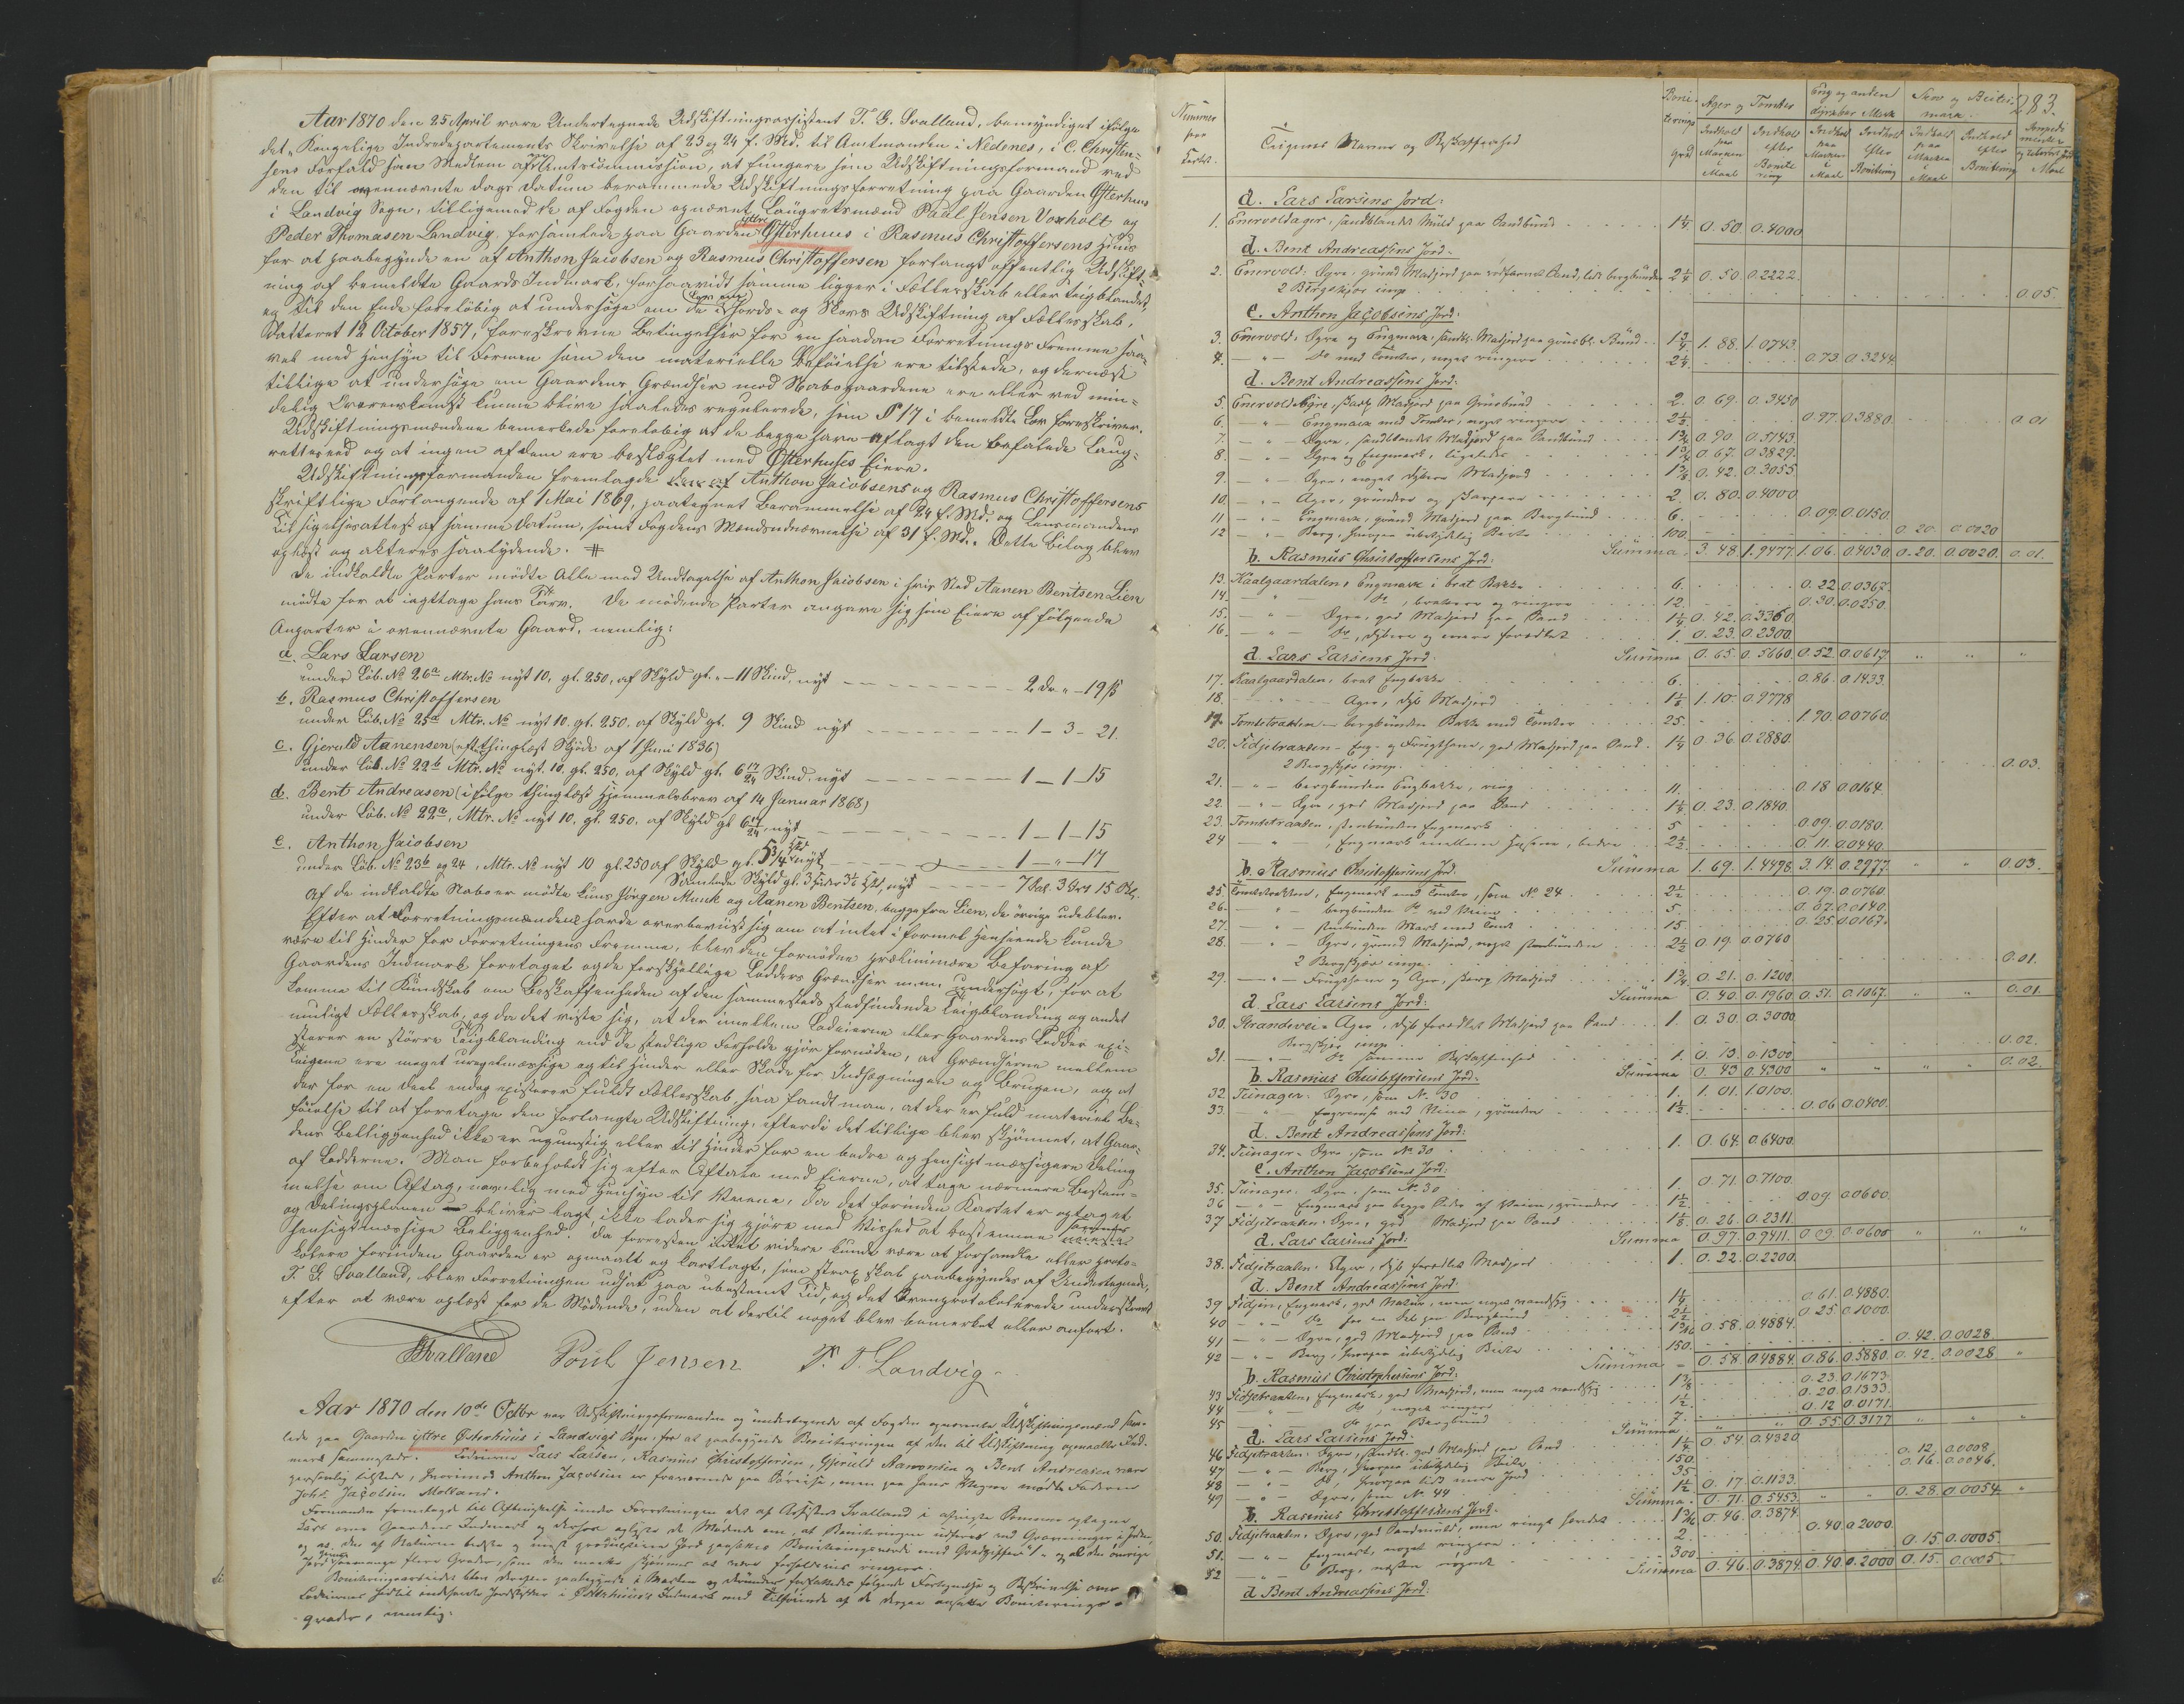 Aar 1870 den 25 April vare Undertegnede Udskiftningsassistent T. G. Svalland, bemyndiget ifølge
det Kongelige Indredepartements Skrivelse af 23 og 24 f. Md. til Amtmanden i Nedenes, i C. Christen-
sens Forfald som Medlem af Amtscommission, at fungere som Udskiftningsformand ved
den til ovennævnte Dags Datum berammede Udskiftningsforretning paa Gaarden Østerhuus
i Landvig Sogn, tilligemed de af Fogden opnævnte Laugretsmænd Paul Jensen Voxholt og
Peder Thomasen Landvig, forsamlede paa Gaarden yttre Østerhuus i Rasmus Christoffersens Huus
for at paabegynde en af Anthon Jacobsen og Rasmus Christoffersen forlangt offentlig Udskift-
ning af bemeldte Gaards Indmark, forsaavidt samme ligger i Fællesskab eller teigblandet,
og til den Ende foreløbig at undersøge om de i Lov om Jords- og Skovs Udskiftning af Fællesskab,
datteret 12 October 1857, foreskrevne Betingelser for en saadan Forretnings Fremme saa-
vel med Hensyn til Formen som den materielle Beføielse ere tilstede, og dernæst
tillige at undersøge om Gaardens Grændser mod Nabogaardene ere eller ved min-
delig Overenskomst kunne blive saaledes regulerede, som § 17 i bemeldte Lov foreskriver.
Udskiftningsmændene bemærkede foreløbig at de begge have aflagt den befalede Laug-
rettesed og at ingen af dem ere beslægtet med Østerhuses Eiere.
Udskiftningsformanden fremlagde Anthon Jacobsens og Rasmus Christoffersens
skriftlige Forlangende af 1 Mai 1869, paategnet Berammelse af 24 f. Md. og Lensmandens
Tilsigelsesattest af samme Datum, samt Fogdens Mændsudnævnelse af 31 f. Md. Dette Bilag blev
oplæst og akteres saalydende. #
De indkaldte Parter mødte Alle med Undtagelse af Anthon Jacobsen i hvis Sted Aanen Bentsen Lien
mødte for at iagttage hans Tarv. De mødende Parter angave sig som Eiere af følgende
Anparter i ovennævnte Gaard, nemlig:
a. Lars Larsen
under Løb. No 26a Mtr. No nyt 10, gl. 250, af Skyld gl. " - 11 Skind, nyt 2 Dr. " - 19 ß
b. Rasmus Christoffersen
under Løb. No 25a Mtr. No nyt 10. gl. 250. af Skyld gl. 9 Skind nyt 1 - 3 - 21.
c. Gjeruld Aanensen (efter thinglæst Skjøde af 1 Juni 1836)
under Løb. No 22b Mtr. No nyt. 10. gl. 250, af Skyld gl. 6 17/24 Skind. nyt 1 - 1 - 15
d. Bent Andreasen (ifølge thinglæst Hjemmelsbrev af 14 Januar 1868)
under Løb. No 22a, Mtr. No nyt 10, gl. 250. af Skyld gl 6 17/24, nyt 1 - 1 - 15
e. Anthon Jacobsen
under Løb. No 23b og 24, Mtr. No nyt 10 gl. 250 af Skyld gl. 5 3/4 nyt 1 - " - 17
Samlede Skyld gl. 3 Huder 3 1/6 Skd, nyt 7 Dal. 3 Ort 15 Skl.
Af de indkaldte Naboer mødte kuns Jørgen Munk og Aanen Bentsen, begge fra Lien, de øvrige udeblev.
Efter at Forretningsmændene havde overbeviist sig om at intet i formel Henseende kunde
være til Hinder for Forretningens Fremme, blev den fornødne præliminære Befaring af
Gaardens Indmark foretaget og de forskjellige Lodders Grændser m.m. undersøgt, for at
komme til Kundskab om Beskaffenheden af den sammesteds stedfindende Teigblanding og andet
muligt Fællesskab, og da det viste sig, at der imellem Lodeierne eller Gaardens Lodder exi-
sterer en større Teigblanding end de stedlige Forholde gjør fornøden, at Grændserne mellem
Teigene ere meget uregelmæssige og til Hinder eller Skade for Indhegningen og Brugen, og at
der for en Deel endog existerer fuldt Fællesskab, saa fandt man, at der er fuld materiel Be-
føielse til at foretage den forlangte Udskiftning, efterdi det tillige blev skjønnet, at Gaar-
dens Beliggenhed ikke er ugunstig eller til Hinder for en bedre og hensigtmæssigere Deling
af Lodderne. Man forbeholdt sig efter Aftale med Eierne, at tage nærmere Bestem-
melse om Aftag, navnlig med Hensyn til Veiene, da det forinden Kartet er optaget
og Delingsplanen bliver lagt, ikke lader sig gjøre med Vished at bestemme sammes
hensigtmæssige Beliggenhed. Da forresten intet videre kunde være at forhandle eller proto-
kolere forinden Gaarden er opmaalt og kartlagt, som strax skal paabegyndes af Undertegnede,
T. G. Svalland, blev Forretningen udsat paa ubestemt Tid, og det Ovenprotokolerede underskrevet
efter at være oplæst for de Mødende, uden at dertil noget blev bemærket eller anført.
TSvalland Poul Jensen P. T. Landvig
Aar 1870 den 10de Octbr var Udskiftningsformanden og undertegnede af Fogden opnævnte Udskiftningsmænd sam-
lede paa Gaarden yttre Østerhuus i Landvigs Sogn, for at paabegynde Boniteringen af den til Udskiftning opmaalte Ind-
mark sammesteds. Lodeierne Lars Larsen, Rasmus Christoffersen, Gjeruld Aanonsen og Bent Andreasen vare
personlig tilstede, hvorimod Anthon Jacobsen er fraværende paa Søreise, men paa hans Vegne mødte Faderen
Johs. Jacobsen Molland.
Formanden fremlagde til Afbenyttelse under Forretningen det af Assistent Svalland i afvigte Sommer optagne
Kart over Gaardens Indmark
Boniteringsarbeidet blev derefter paabegyndt i Marken og derunder forfattedes følgende Fortegnelse og Beskrivelse over
Lodeiernes hidtil indehavte Jordstykker i Østerhuus's Indmark med Tilføiende af de derpaa ansatte Boniterings-
grader, nemlig:
283
Nummer paa Kartet. Teigenes Navne og Beskaffenhed Boniterings Grad Ager og Tomter Eng og anden dyrkbar Mark Skov og Beitesmark
Indhold paa Marken i Maal Indhold efter Bonitering Indhold paa Marken i Maal Indhold efter Bonitering Indhold paa Marken i Maal Indhold efter Bonitering Impedimenter Maal
a. Lars Larsens Jord:
1. Enervoldager, sandblandet Muld paa Sandbund 1 1/4 0.50. 0.4000
d. Bent Andreassens Jord.
2. Enervold: Agre, grund Madjord paa rødfarvet Sand, lidt bergbunden 2 1/4 0.50 0.2222.
2 Bergskjær imp. 0.05.
e. Anthon Jacobsens Jord:
3. Enervold, Agre og Engmark, 1 3/4 1.88. 1.0743
4. — " — Do med Tomter, noget ringere 2 1/4 0.73. 0.3244
d. Bent Andreassens Jord:
5. Enervold Agre, skarp Madjord paa Gruusbund 2. 0.69. 0.3450
6. — " — Engmark med Tomter, noget ringere 2 1/2 0.97. 0.3880. 0.01
7. — " — Agre, sandblandet Madjord paa Sandbund 1 3/4 0.90. 0.5143
8. — " — Agre og Engmark, ligeledes 1 3/4 0.67. 0.3829.
9. — " — Agre, noget dybere Madjord 1 3/8 0.42. 0.3055
10. — " — Ager, grundere og skarpere 2. 0.80. 0.4000
11 — " — Engmark, grund Madjord paa Bergbund 6. 0.09. 0.0150.
12 — " — Berg, hvorpaa ubetydelig Beite 100. 0.20. 0.0020
Summa. 3.48. 1.9477. 1.06. 0.4030. 0.20. 0.0020. 0.01.
b. Rasmus Christoffersens Jord:
13. Kaalgaardalen, Engmark i brat Bakke 6. 0.22. 0.0367.
14. — " — Do, brattere og ringere 12. 0.30. 0.0250.
15. — " — Agre, god Madjord paa Sand 1 1/4 0.42. 0.3360
16. — " — Do, dybere og mere forædlet 1. 0.23. 0.2300
Summa 0.65. 0.5660. 0.52 0.0617 " " "
a. Lars Larsens Jord.
17. Kaalgaardalen, brat Engbakke 6. 0.86. 0.1433.
18. — " — Ager, dyb Madjord 1 1/8 1.10. 0.9778
19. Tomtetrakten — bergbunden Bakke med Tomter 25. 1.90. 0.0760
20. Fidjetrakten — Eng- og Frugthave, god Madjord paa Sand. 1 1/4 0.36. 0.2880.
2 Bergskjær imp. 0.03.
21. — " — bergbunden Engbakke, ring 11. 0.18 0.0164.
22. — " — Agre, god Madjord paa Sand 1 1/4 0.23. 0.1840.
23. Tomtetrakten, steenbunden Engmark 5 0.09. 0.0180.
24 — " —, Engmark mellem Husene, bedre 2 1/2 0.11. 0.0440.
Summa 1.69. 1.4498. 3.14. 0.2977. " " 0.03.
b. Rasmus Christoffersens Jord.
25 Tomtetrakten, Engmark med Tomter, som No 24 2 1/2 0.19. 0.0760.
26. — " — bergbunden Do 5. 0.07. 0.0140.
27. — " — steenbunden Mark med Tomt 15 0.25. 0.0167.
28. — " — Agre, grund Madjord, noget steenbunden 2 1/2 0.19 0.0760
2 Bergskjær imp. 0.01.
29. — " — Frugthave og Ager, skarp Madjord 1 3/4 0.21. 0.1200
Summa 0.40. 0.1960 0.51. 0.1067. " " 0.01.
a. Lars Larsens Jord:
30. Strandvei — Ager, dyb forædlet Madjord paa Sand 1. 0.30. 0.3000
Bergskjær imp. 0.02.
31. — " — Do samme Beskaffenhed 1. 0.13. 0.1300
Summa 0.43 0.4300 " " " " 0.02.
b. Rasmus Christoffersens Jord.
32. Tunager: Agre, som No. 30 1. 1.01. 1.0100.
33. — " — Engremse ved Veien, grundere 1 1/2 0.06 0.0400.
d. Bent Andreassens Jord:
34. Tunager — Agre som No 30 1. 0.64. 0.6400
e. Anthon Jacobsens Jord:
35. Tunager. Agre, som No 30 1. 0.71. 0.7100.
36 — " — Engmark paa begge Sider af Veien, grundere 1 1/2 0.09. 0.0600.
37 Fidjetrakten. Agre, god Madjord paa Sand 1 1/8. 0.26. 0.2311.
Summa 0.97. 0.9411. 0.09. 0.0600 " " "
a. Lars Larsens Jord:
38. Fidjetrakten. Ager, dyb forædlet Madjord 1. 0.22. 0.2200.
d. Bent Andreassens Jord.
39 Fidjen, Engmark, god Natur, men noget vandsyg 1 1/4 0.61. 0.4880.
40 — " — Do for en Del paa Bergbund 2 1/2 0.25 0.1000.
41 — " — Agre, god Madjord paa Sand 1 3/16 0.58. 0.4884.
42 — " — Berg, hvorpaa ubetydelig Beite 150. 0.42. 0.0028
Summa — 0.58. 0.4884. 0.86. 0.5880. 0.42. 0.0028 "
b. Rasmus Christophersens Jord:
43 Fidjetrakten, Engmark, god Madjord, men noget vandsyg 1 3/8 0.23. 0.1673.
44 — " — Do, noget ringere 1 1/2. 0.20. 0.1333.
45 — " — Do paa Bergbund 7. 0.12 0.0171.
Summa " " 0.55. 0.3177 " " "
a. Lars Larsens Jord:
46 Fidjetrakten. Agre, sandbl. god Madjord paa Sand 1 1/4 0.54. 0.4320.
47 — " — Berg, hvorpaa ubetydelig Beite 150. 0.12. 0.0008
48 — " — Do, hvorpaa lidt mere Jord 35 0.16. 0.0046.
49 — " — Agre, som No. 44 1 1/2 0.17. 0.1133.
Summa. 0.71. 0.5453. " " 0.28. 0.0054 "
b. Rasmus Christoffersens Jord.
50. Fidjetrakten, Agre, god Sandmuld, men ringe hævdet 1 3/16 0.46. 0.3874.
51. — " — Engmark, noget ringere 2. 0.40. 0.2000.
52 — " — Berg, næsten nøgent 300 0.15 0.0005.
Summa 0.46. 0.3874. 0.40. 0.2000 0.15. 0.0005
d Bent Andreassens Jord: